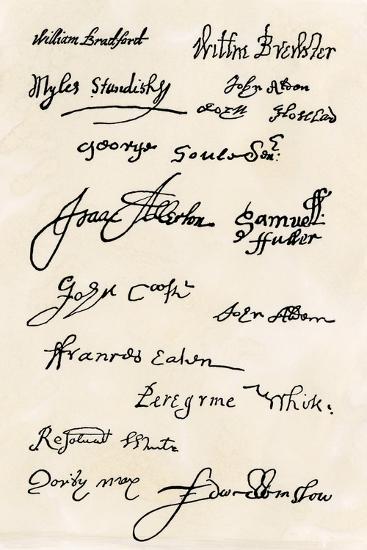 William Bradford
Willm Brewster
Myles Standish
John Alden
George Soule Senr:
Isaac Allerton
Samuell
ffuller
John Cooke
John Alden
ffrancis Eaton
Peregrine White.
Resolved White
Edw: Winslow